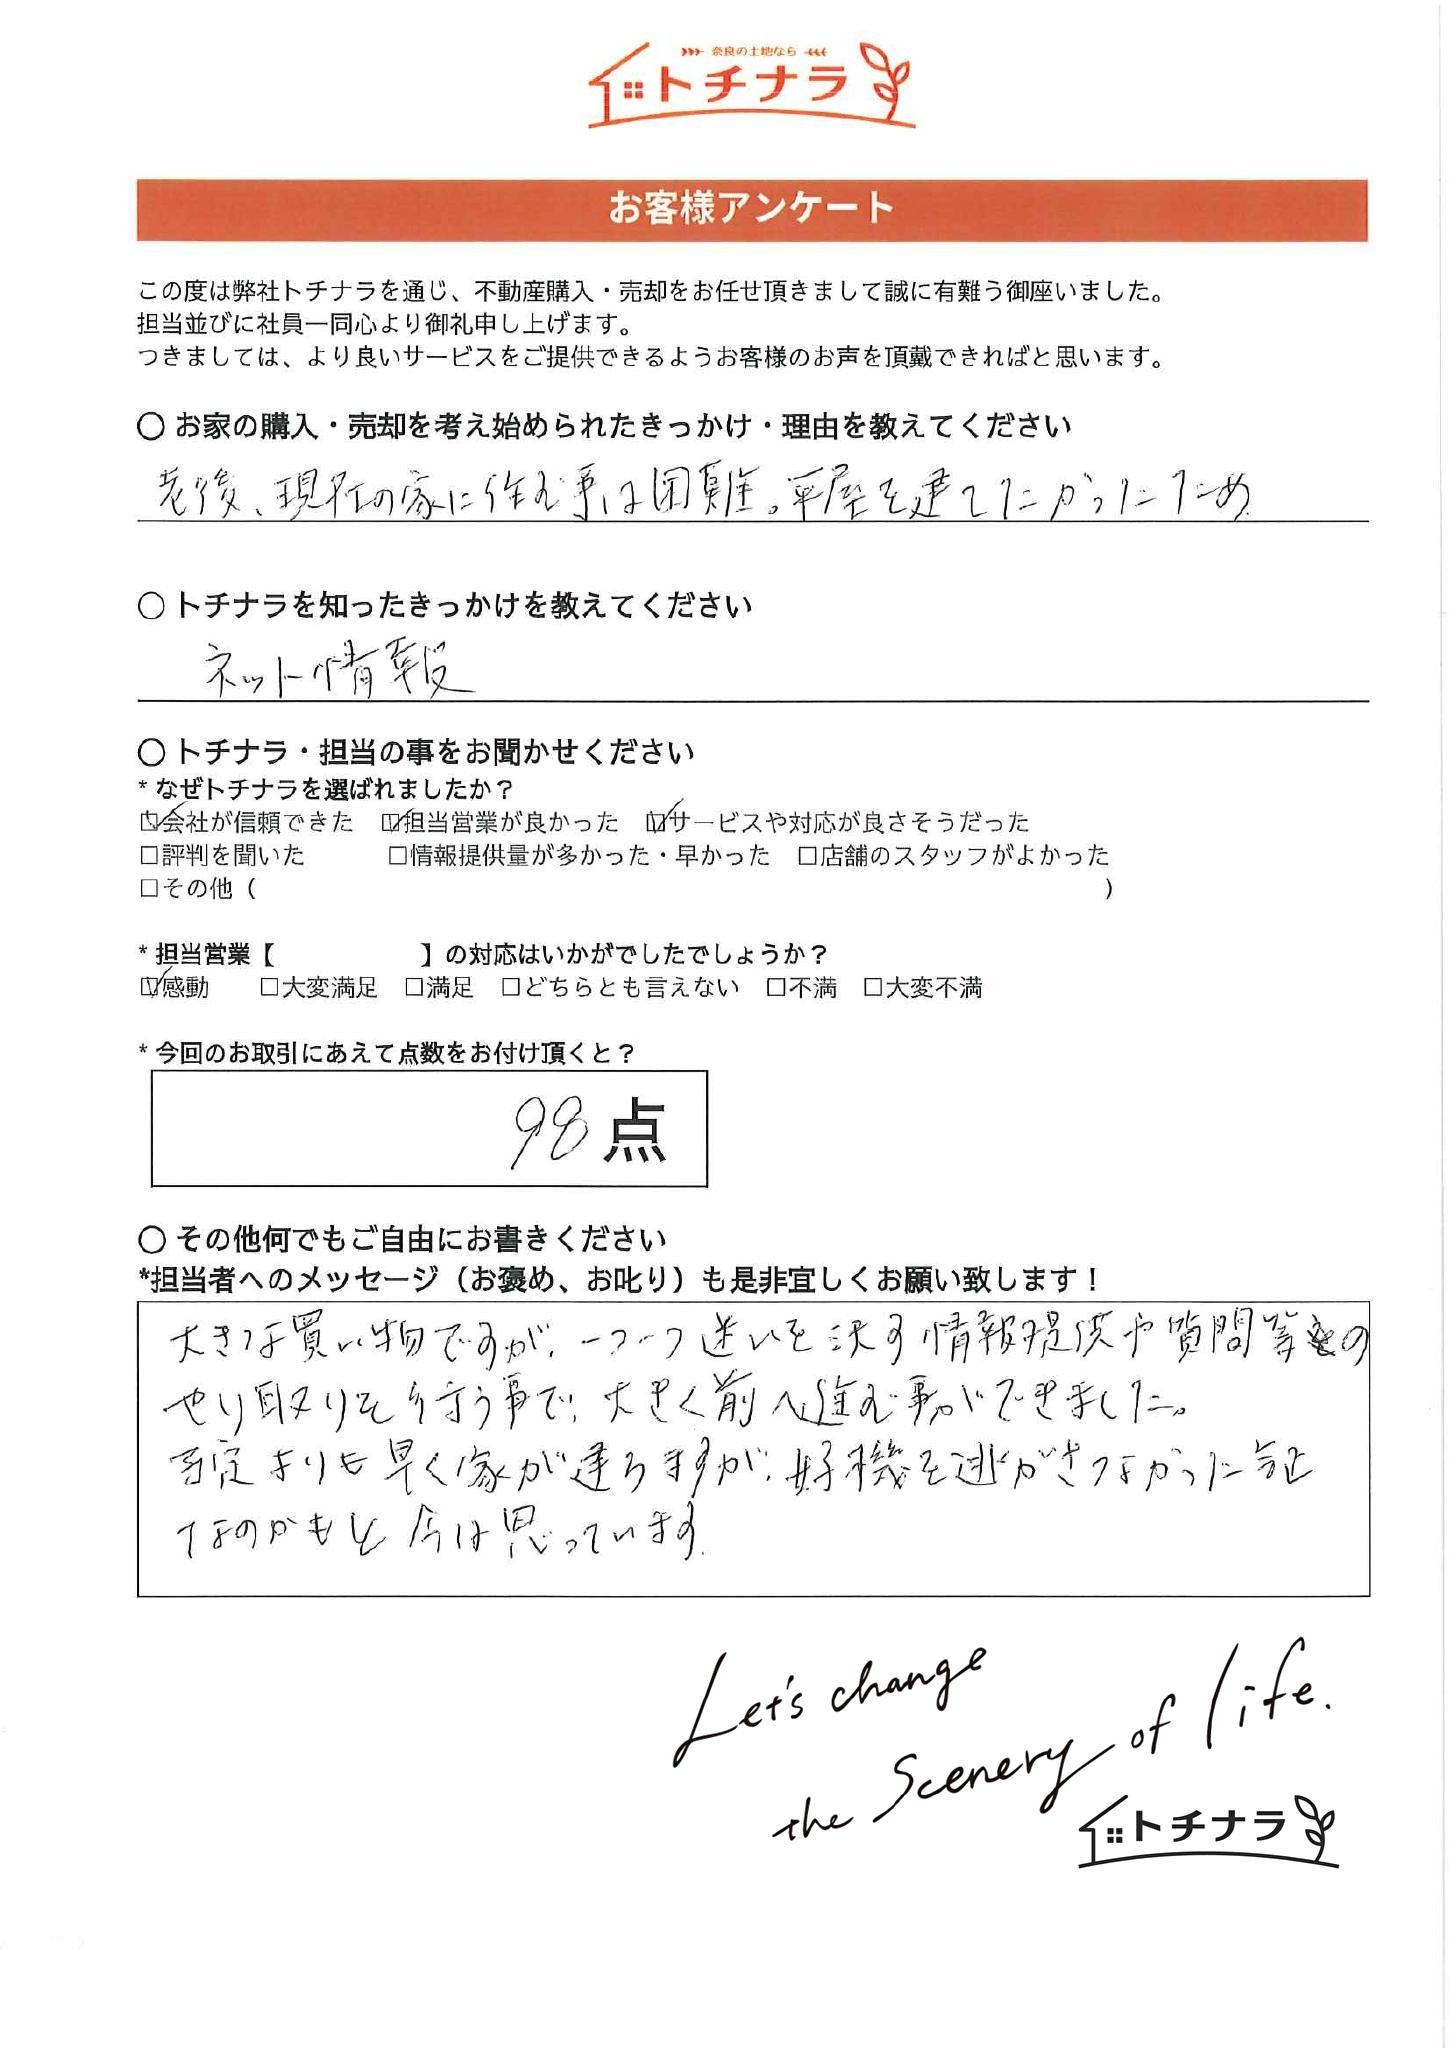 奈良の土地なら
トチナラ
お客様アンケート
この度は弊社トチナラを通じ、不動産購入・売却をお任せ頂きまして誠に有難う御座いました。
担当並びに社員一同心より御礼申し上げます。
つきましては、より良いサービスをご提供できるようお客様のお声を頂戴できればと思います。
○ お家の購入・売却を考え始められたきっかけ・理由を教えてください
老後、現在の家に住む事は困難。平屋を建てたかったため
○ トチナラを知ったきっかけを教えてください
ネット情報
○ トチナラ・担当の事をお聞かせください
* なぜトチナラを選ばれましたか?
☑会社が信頼できた ☑担当営業が良かった ☑サービスや対応が良さそうだった
□評判を聞いた □情報提供量が多かった・早かった □店舗のスタッフがよかった
□その他 ( )
* 担当営業【 】の対応はいかがでしたでしょうか?
☑感動 □大変満足 □満足 □どちらとも言えない □不満 □大変不満
* 今回のお取引にあえて点数をお付け頂くと?
98 点
○ その他何でもご自由にお書きください
*担当者へのメッセージ(お褒め、お叱り)も是非宜しくお願い致します!
大きな買い物ですが、一つ一つ迷いを決す情報提供や質問等の
やり取りを行う事で、大きく前へ進む事ができました。
予定よりも早く家が建ちますが、好機を逃がさなかった証
なのかもと今は思っています。
Let's change
the Scenery of life.
トチナラ